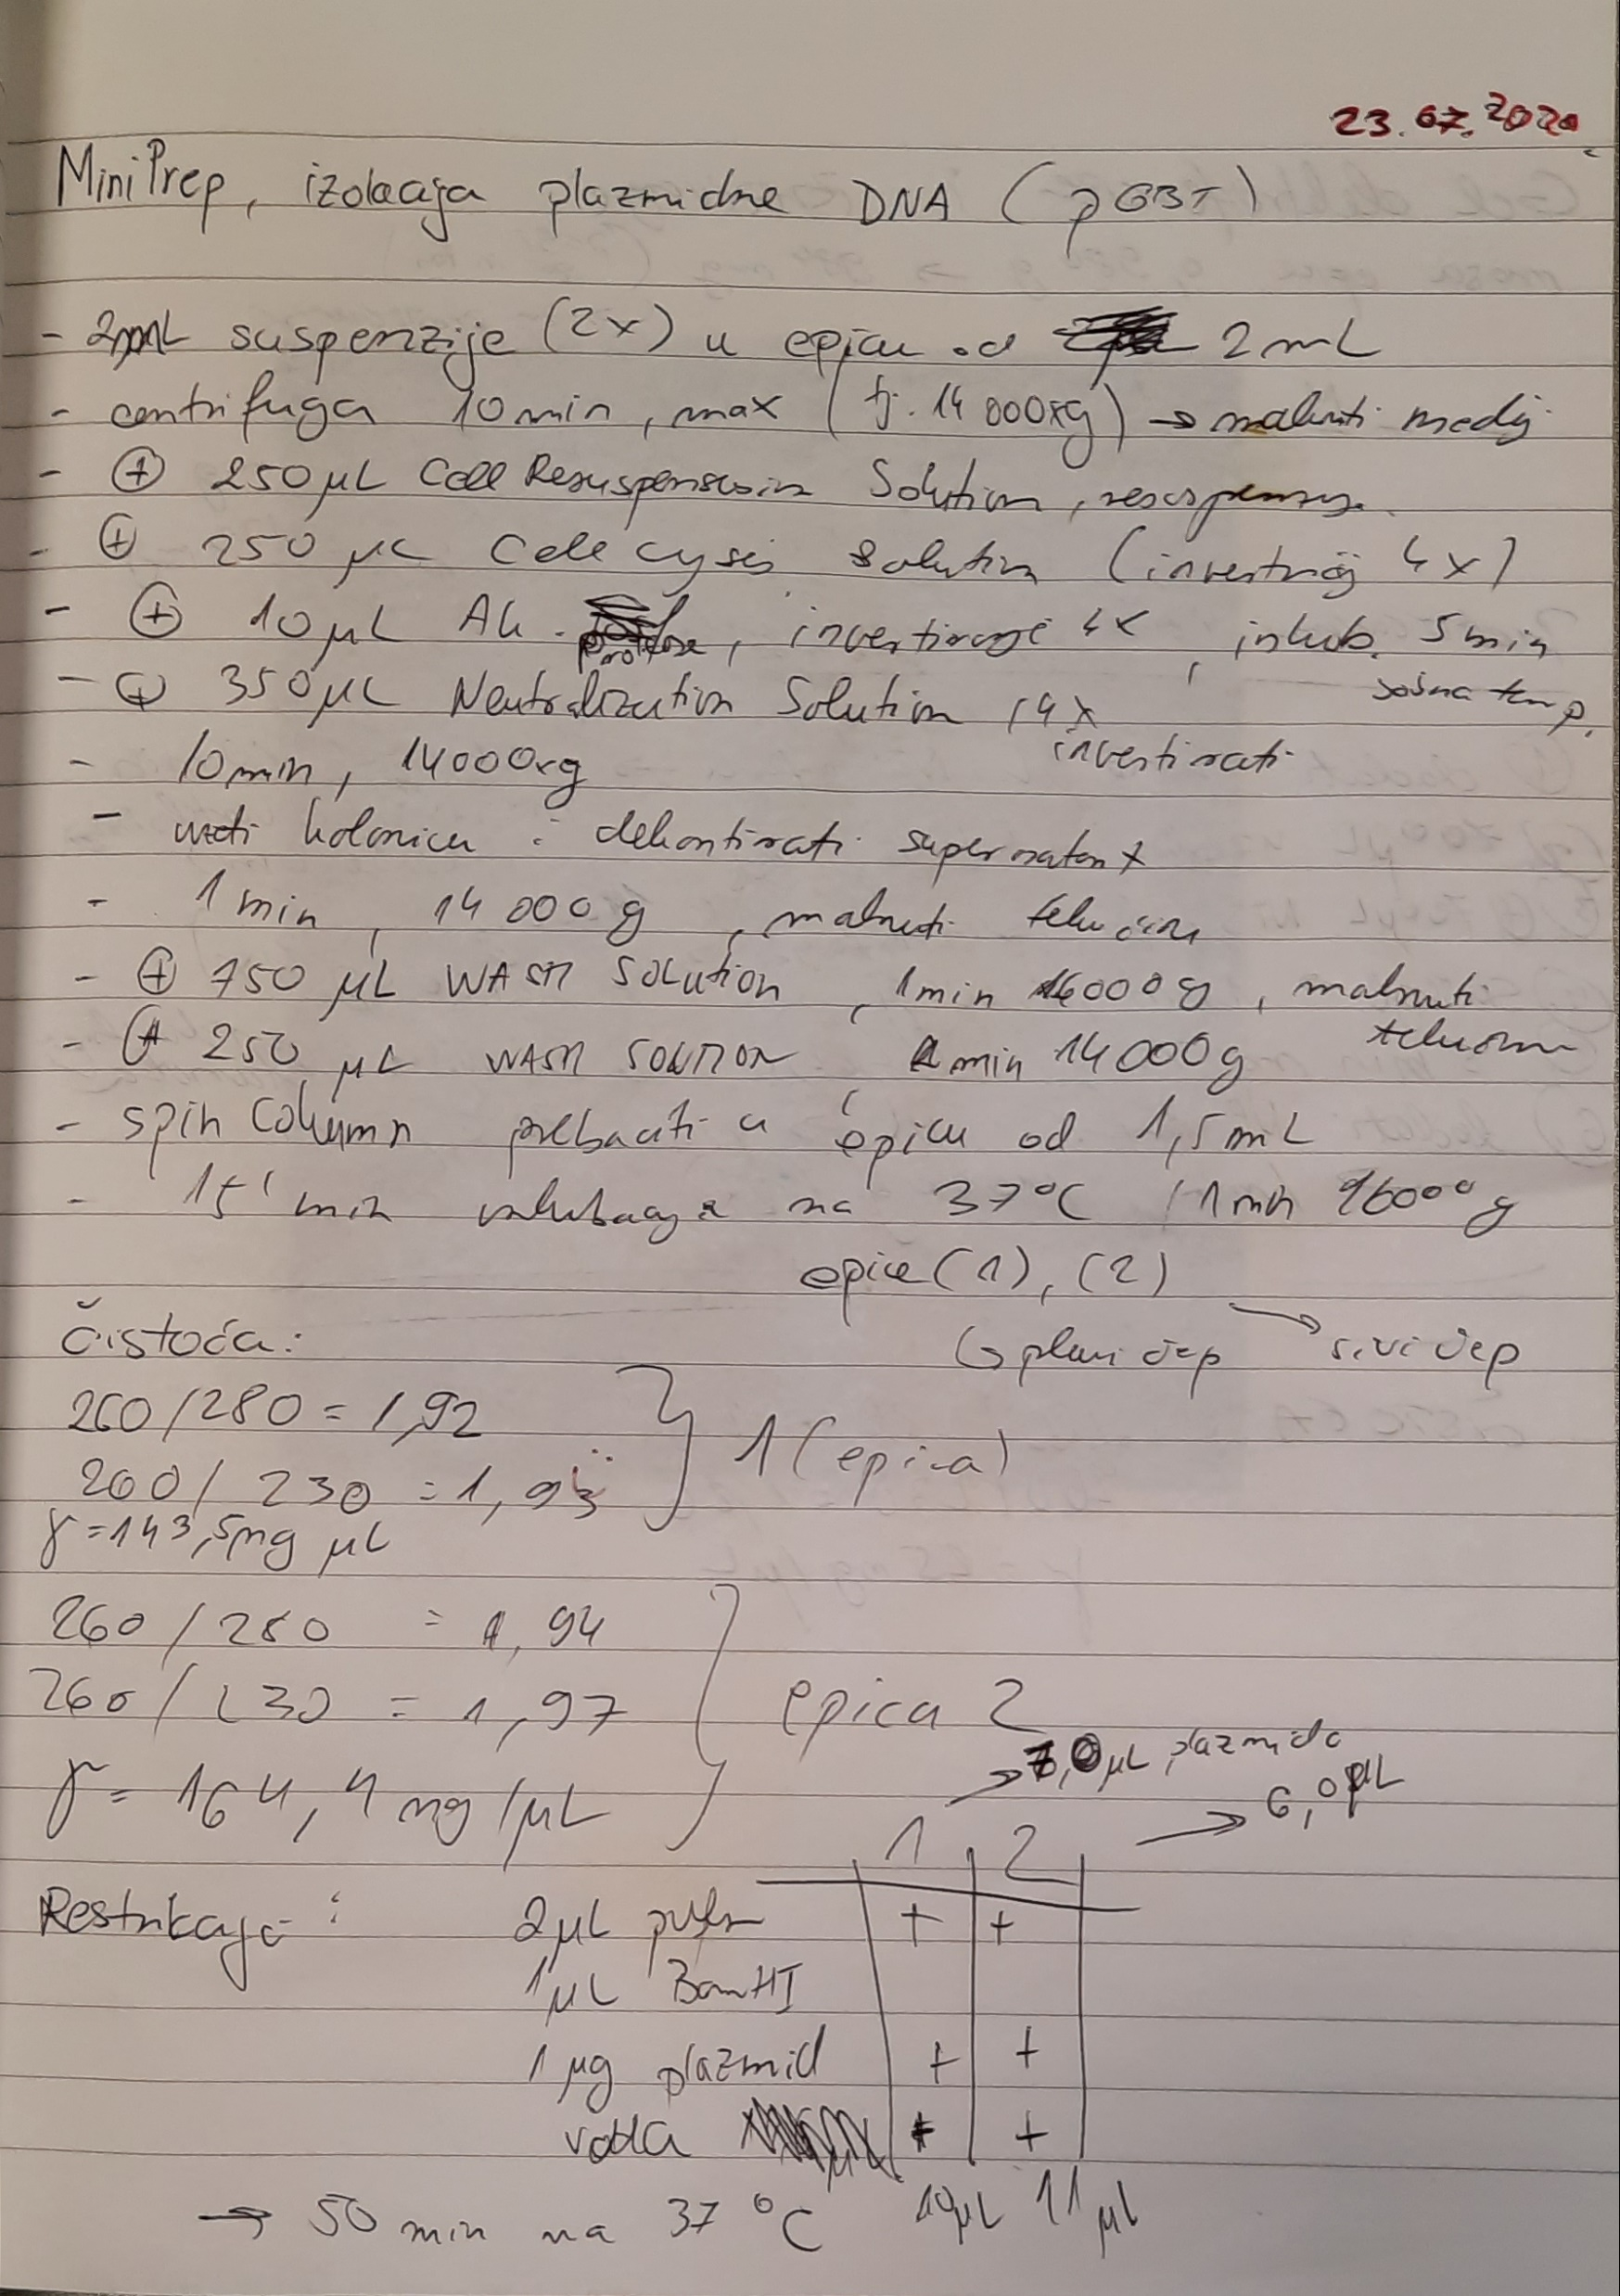 23.07.2020.
MiniPrep, izolacija plazmidne DNA (pGBT)
- 2mL suspenzije (2x) u epicu od 2mL
- centrifuga 10min, max (tj. 14 000xg) → maknuti medij
- ⊕ 250 µL Cell Resuspension Solution,
- ⊕ 250 µL Cell Lysis Solution (invertiraj 4x)
- ⊕ 10µL Alk. protease, invertiranje 4x, inkub. 5min
sobna temp.
- ⊕ 350µL Neutralization Solution, 4x
invertirati
- 10min, 14000xg
- uzeti kolonicu i dekantirati supernatant
- 1min, 14 000 g, maknuti tekućinu
- ⊕ 750 µL WASH SOLUTION, 1min 14000g, maknuti
tekućinu
- ⊕ 250 µL WASH SOLUTION, 2min 14000g
- spin column prebaciti u epicu od 1,5mL
- 15' min inkubacija na 37°C / 1min
epice (1), (2)
↳ plavi čep → sivi čep
čistoća:
260/280 = 1,92
1 (epica)
260/230 = 1,93
γ=143,5ng µL
260/280 = 1,94
260/230 = 1,97
epica 2
γ= 164,4 ng/µL
→ 7,0µL plazmida
→ 6,0µL
1 2
Restrikcija: 2µL pufer + +
1µL BamHI
1 µg plazmid + +
voda + +
10µL 11µL
→ 50 min na 37 °C